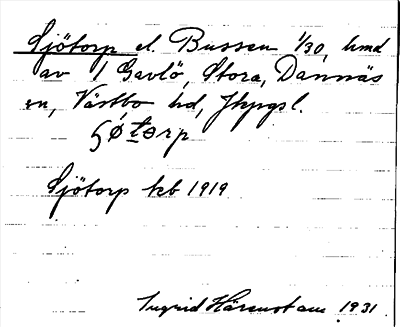 Sjötorp el. Bussen 1/30, hmd
av 1 Gavlö, Stora, Dannäs
sn, Västbo hd, Jkpgs l.
Sjötorp kb 1919
Ingrid 1931